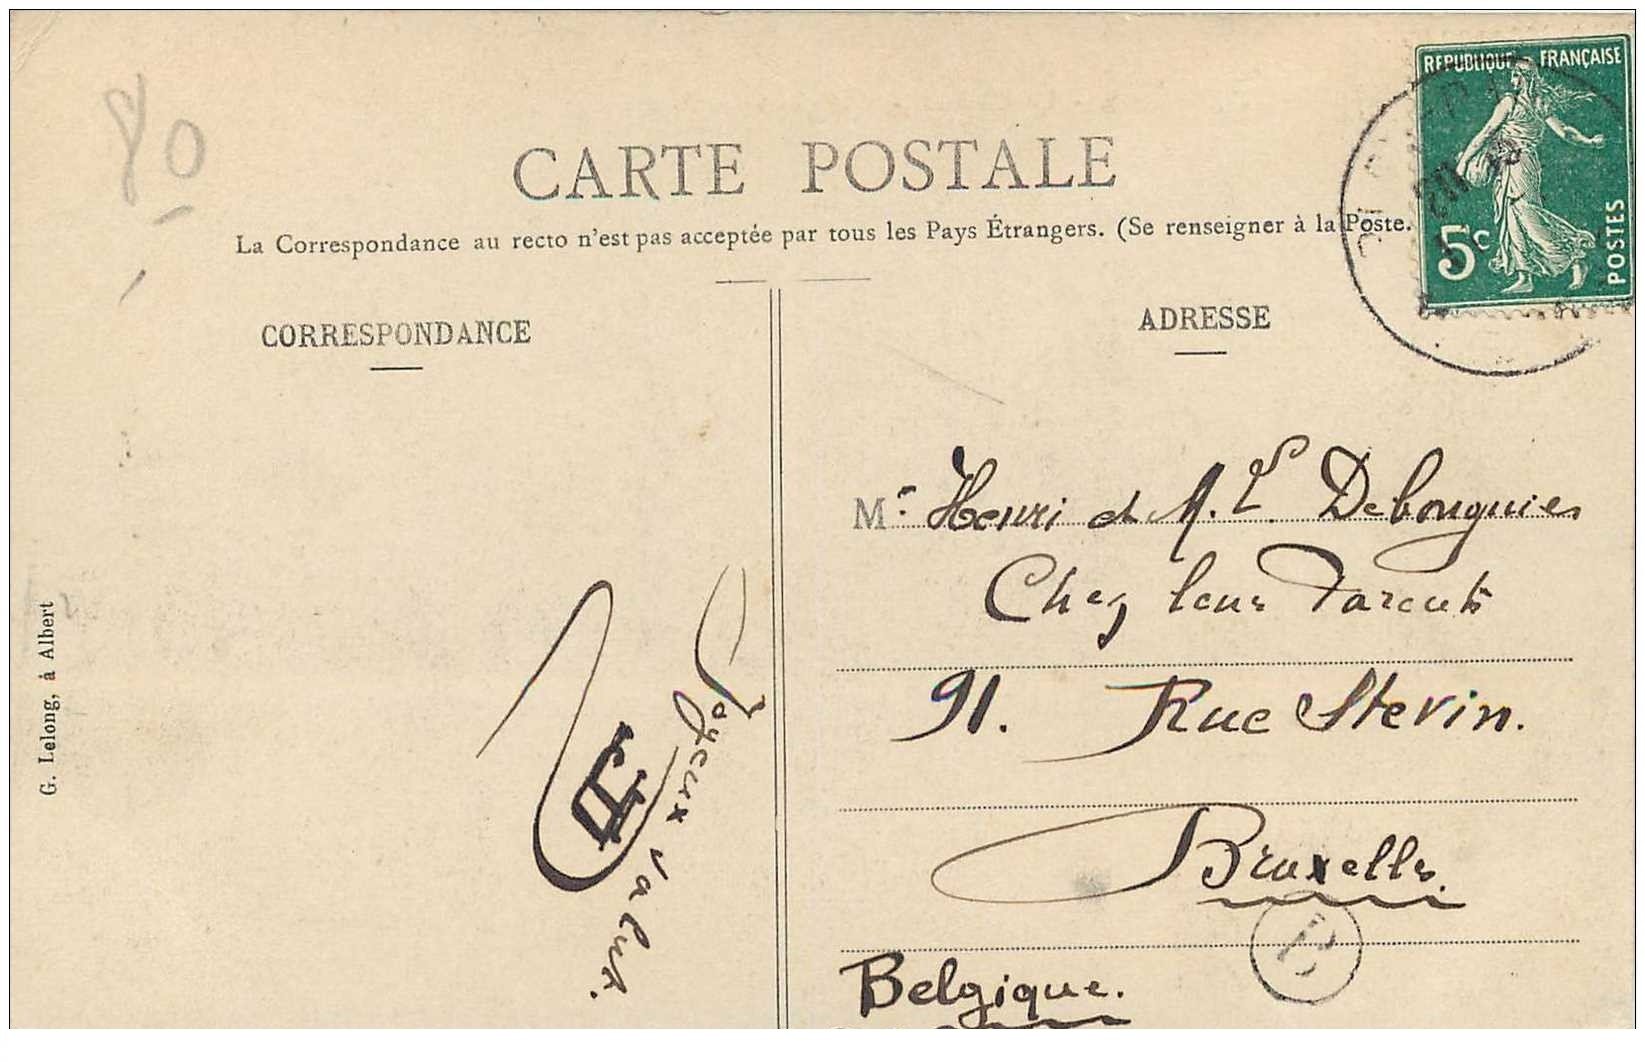 80
REPUBLIQUE FRANÇAISE
5c
POSTES
CARTE POSTALE
La Correspondance au recto n'est pas acceptée par tous les Pays Étrangers. (Se renseigner à la Poste.
CORRESPONDANCE
ADRESSE
Mr Henri et M. L. Debouguies
Chez leurs Parents
91. Rue Stevin.
Bruxelles.
B
Belgique.
Joyeux salut.
G. Lelong, à Albert